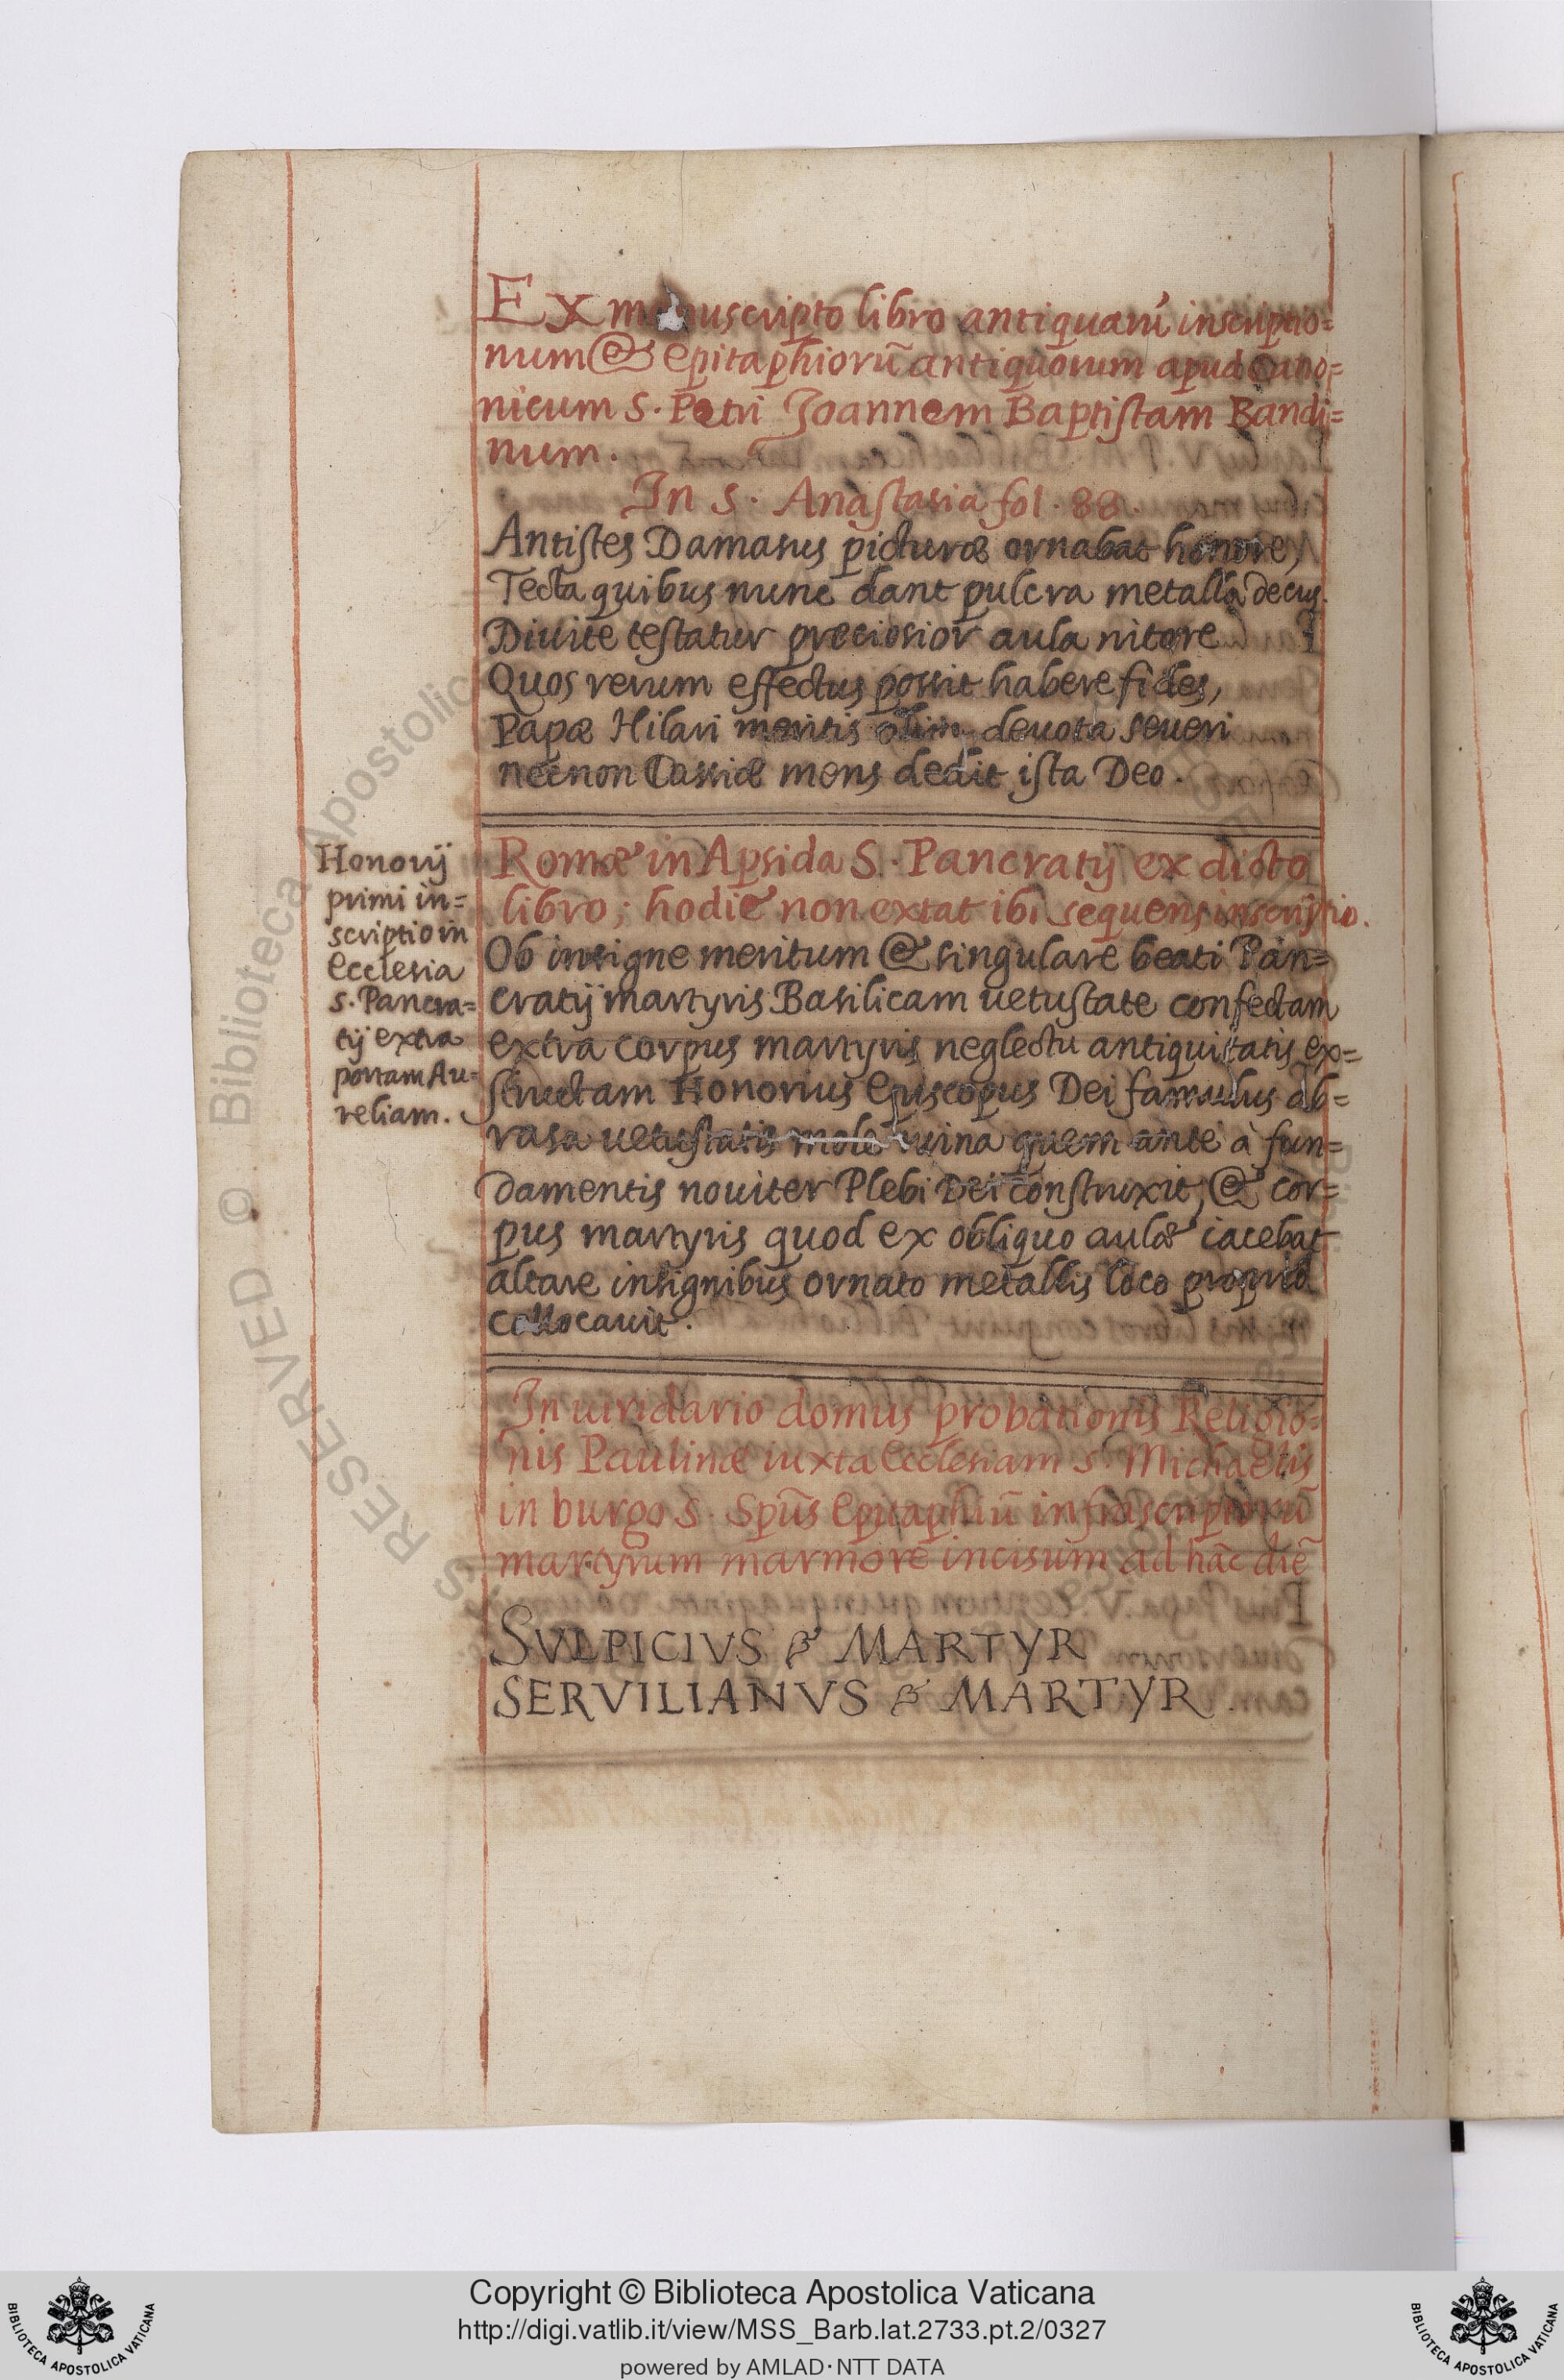 Ex manuscripto libro antiquarū inscriptio=
num & epitaphiorū antiquorum apud Cano=
nicum S. Petri Joannem Baptistam Bandi=
num.
In S. Anastasia fol. 88.
Antistes Damasus picturæ ornabat honore,
Tecta quibus nunc dant pulcra metalla decus.
Diuite testatur preciosior aula nitore
Quos rerum effectus possit habere fides,
Papæ Hilari meritis olim deuota seueri
necnon Cassiæ mens dedit ista Deo.
Honorij
primi in=
scriptio in
Ecclesia
S. Pancra=
tij extra
portam Au=
reliam.
Romæ in Apsida S. Pancratij ex dicto
libro; hodie non extat ibi sequens inscriptio.
Ob insigne meritum & singulare beati Pan=
cratij martyris Basilicam uetustate confectam
extra corpus martyris neglectu antiquitatis ex=
structam Honorius Episcopus Dei famulus ab=
rasa uetustatis mole ruina quem ante à fun=
damentis nouiter Plebi Dei construxit, & cor=
pus martyris quod ex obliquo aulæ iacebat
altare insignibus ornato metallis loco proprio
collocauit.
In uiridario domus probationis Religio=
nis Paulinæ iuxta Ecclesiam S. Michaelis
in burgo S. Spūs Epitaphiū infrascriptorū
martyrum marmore incisum ad hāc diē
SVLPICIVS MARTYR
SERVILIANVS MARTYR.
© Biblioteca Apostolic
RESERVED
Copyright © Biblioteca Apostolica Vaticana
http://digi.vatlib.it/view/MSS_Barb.lat.2733.pt.2/0327
powered by AMLAD·NTT DATA
BIBLIOTECA APOSTOLICA VATICANA
BIBLIOTECA APOSTOLICA VATICANA